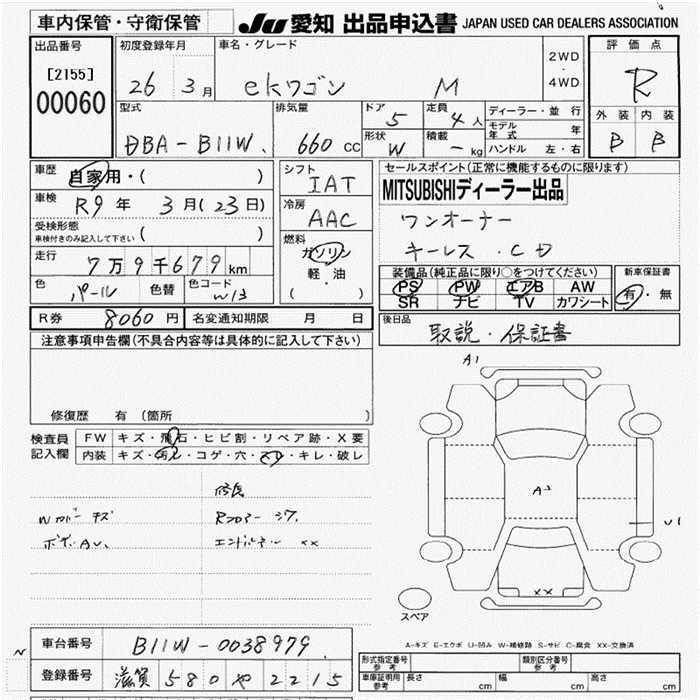 車内保管・守衛保管
JU 愛知 出品申込書 JAPAN USED CAR DEALERS ASSOCIATION
出品番号
[2155]
00060
初度登録年月
26 3月
車名・グレード
ekワゴン M
2WD
・
4WD
評価点
R
外装 内装
B B
型式
DBA-B11W
排気量
660 CC
ドア
5
定員
4人
形状
W
積載
- kg
ディーラー・並行
モデル年式 年
ハンドル 左・右
車歴
自家用・( )
車検
R9年 3月(23日)
受検形態
車検付きのみ記入して下さい ( )
走行
7万9千679km
色
パール
色替
色コード
W13
シフト
IAT
冷房
AAC
燃料
ガソリン
軽・油
( )
セールスポイント(正常に機能するものに限ります)
MITSUBISHIディーラー出品
ワンオーナー
キーレス・CD
装備品(純正品に限り○をつけてください)
PS PW エアB AW
SR ナビ TV カワシート
新車保証書
有・無
R券 8060円 名変通知期限 月 日
後日品
取説・保証書
注意事項申告欄(不具合内容等は具体的に記入して下さい)
修復歴 有(箇所 )
検査員
記入欄
FW キズ・飛石・ヒビ割・リペア跡・X要
内装 キズ・汚レ・コゲ・穴・スレ・キレ・破レ
A1
A3
U1
XX
スペア
修復
Wカバーキズ
ボデーAU.
Rフロアーシワ.
エンドパネル XX
A-キズ E-エクボ U-凹み W-補修跡 S-サビ C-腐食 XX-交換済
車台番号 B11W-0038979
登録番号 滋賀 580 や 2215
型式指定番号
参考
類別区分番号
参考
車庫証明用
参考
長さ cm 幅 cm 高さ cm